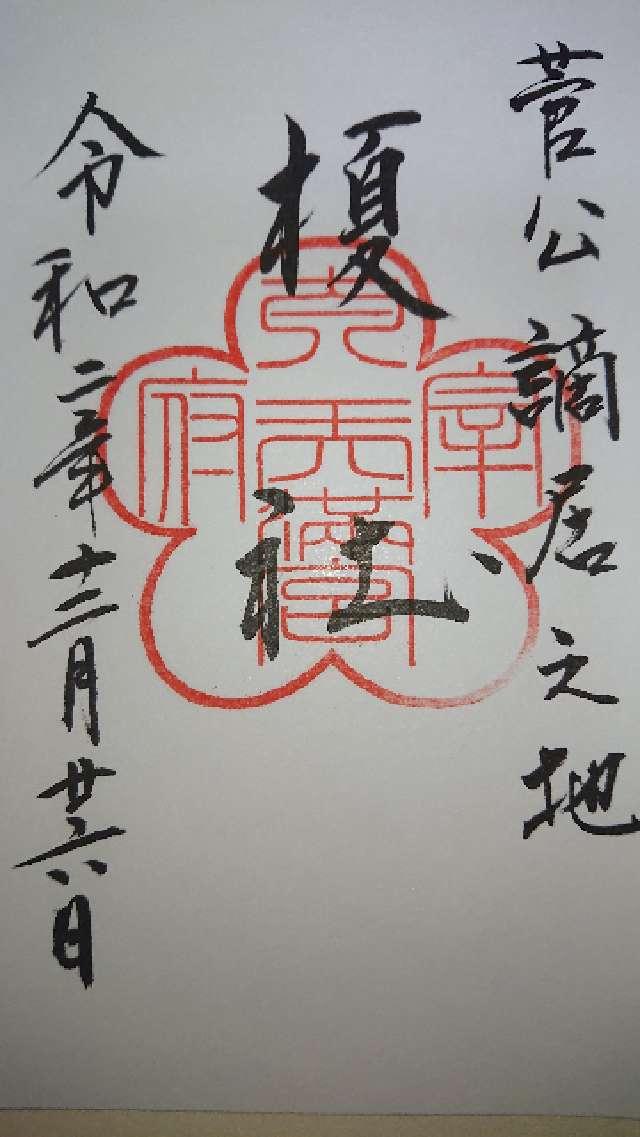 菅公謫居之地
榎社
令和二年十二月廿六日
宰
府
天満宮